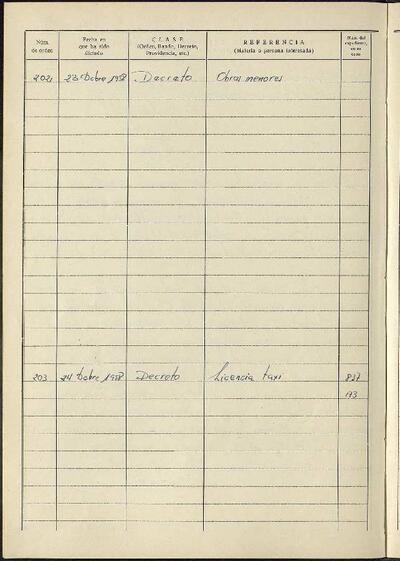 Núm. de orden
Fecha en que ha sido dictado
CLASE (Orden, Bando, Decreto, Providencia, etc.)
REFERENCIA (Materia o persona interesada)
Núm. del expediente, en su caso
202 23 Obre 1958 Decreto Obras menores
203 24 Obre 1958 Decreto Licencia taxi 837
173